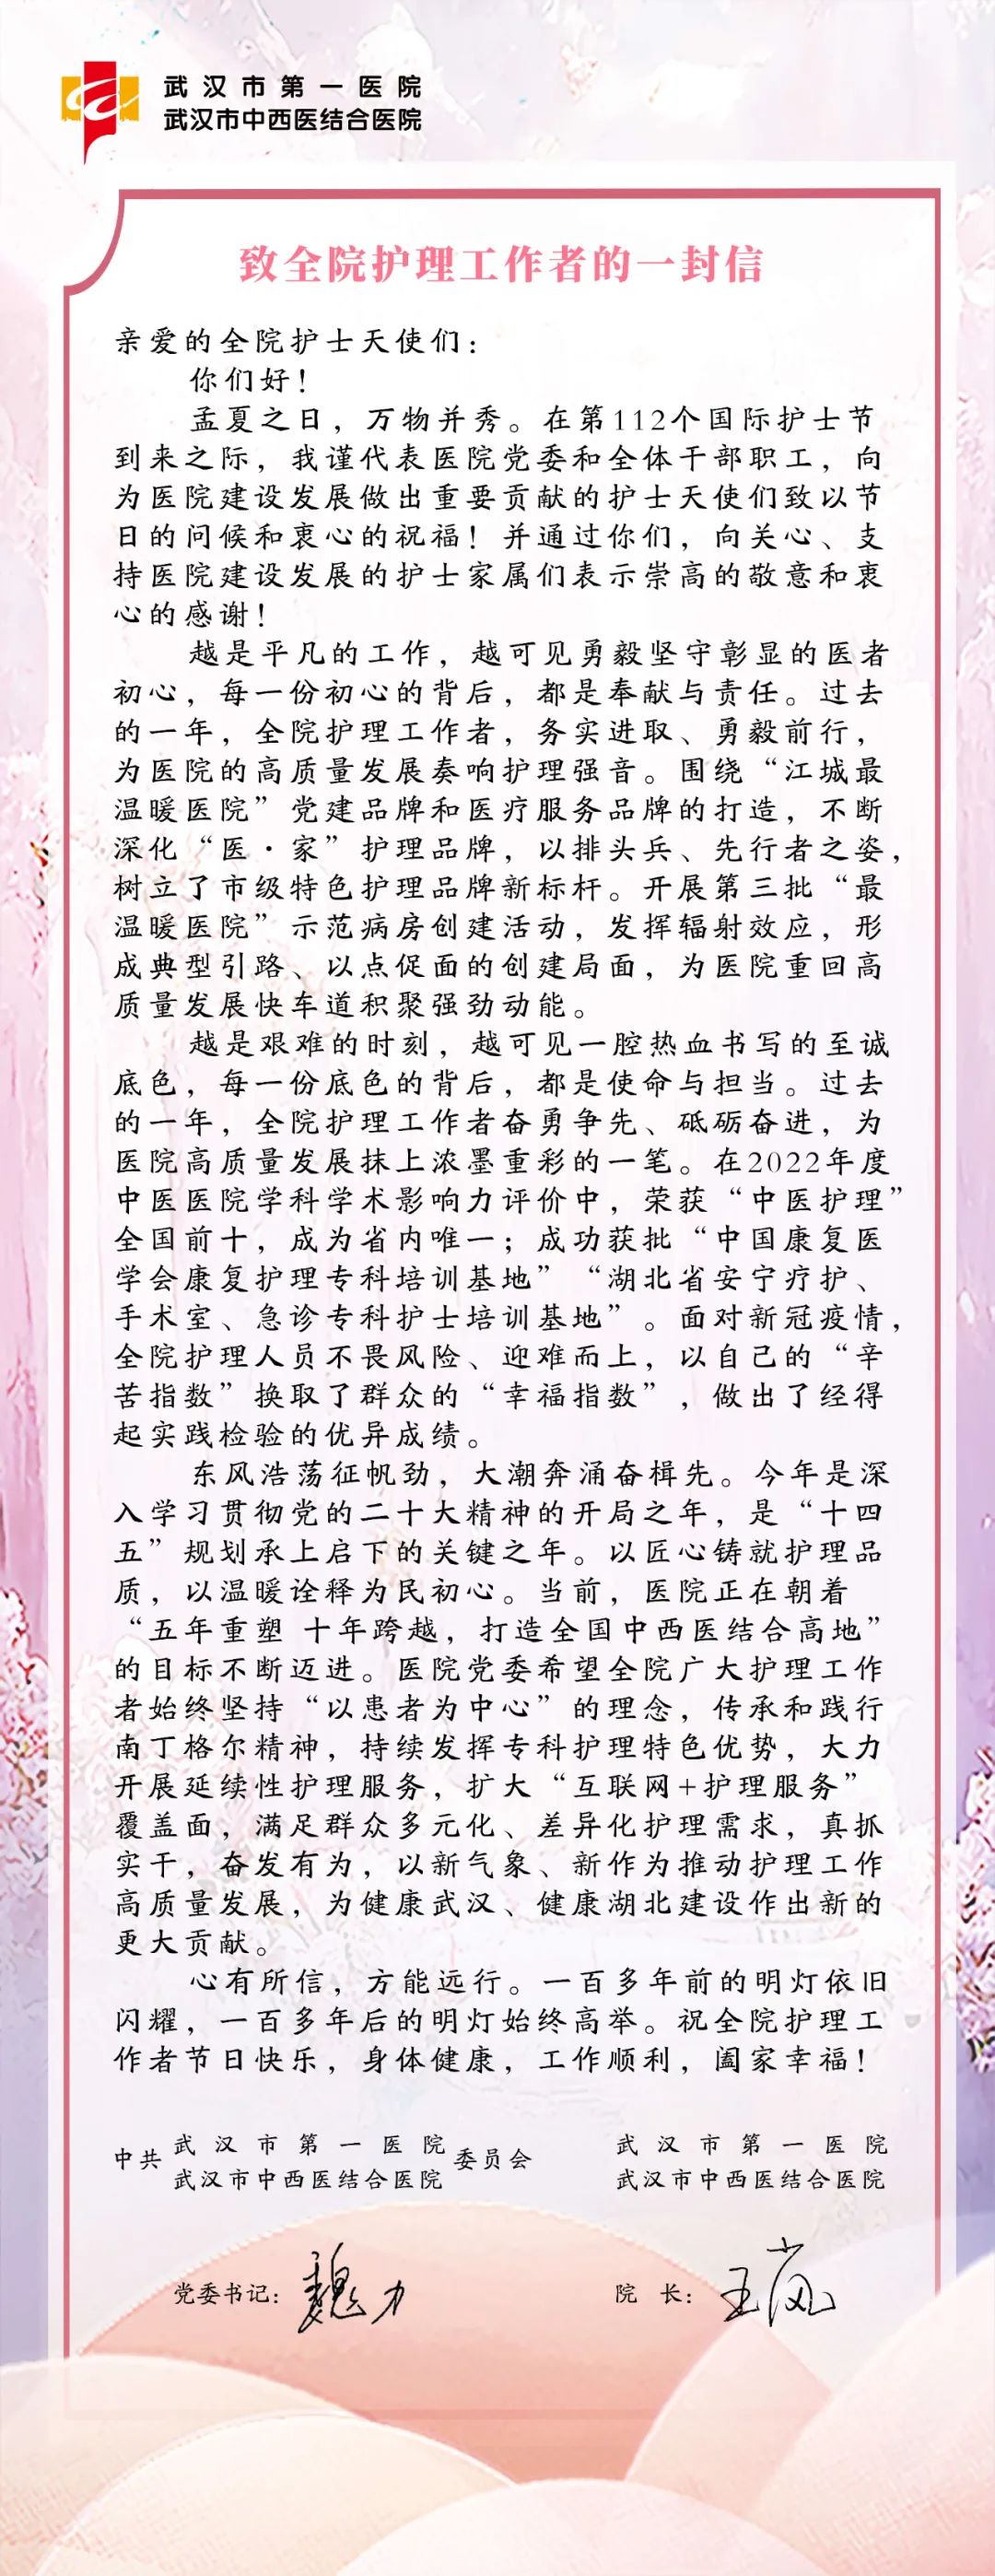 武汉市第一医院
武汉市中西医结合医院
致全院护理工作者的一封信
亲爱的全院护士天使们：
你们好！
孟夏之日，万物并秀。在第112个国际护士节
到来之际，我谨代表医院党委和全体干部职工，向
为医院建设发展做出重要贡献的护士天使们致以节
日的问候和衷心的祝福！并通过你们，向关心、支
持医院建设发展的护士家属们表示崇高的敬意和衷
心的感谢！
越是平凡的工作，越可见勇毅坚守彰显的医者
初心，每一份初心的背后，都是奉献与责任。过去
的一年，全院护理工作者，务实进取、勇毅前行，
为医院的高质量发展奏响护理强音。围绕“江城最
温暖医院”党建品牌和医疗服务品牌的打造，不断
深化“医·家”护理品牌，以排头兵、先行者之姿，
树立了市级特色护理品牌新标杆。开展第三批“最
温暖医院”示范病房创建活动，发挥辐射效应，形
成典型引路、以点促面的创建局面，为医院重回高
质量发展快车道积聚强劲动能。
越是艰难的时刻，越可见一腔热血书写的至诚
底色，每一份底色的背后，都是使命与担当。过去
的一年，全院护理工作者奋勇争先、砥砺奋进，为
医院高质量发展抹上浓墨重彩的一笔。在2022年度
中医医院学科学术影响力评价中，荣获“中医护理”
全国前十，成为省内唯一；成功获批“中国康复医
学会康复护理专科培训基地”“湖北省安宁疗护、
手术室、急诊专科护士培训基地”。面对新冠疫情，
全院护理人员不畏风险、迎难而上，以自己的“辛
苦指数”换取了群众的“幸福指数”，做出了经得
起实践检验的优异成绩。
东风浩荡征帆劲，大潮奔涌奋楫先。今年是深
入学习贯彻党的二十大精神的开局之年，是“十四
五”规划承上启下的关键之年。以匠心铸就护理品
质，以温暖诠释为民初心。当前，医院正在朝着
“五年重塑 十年跨越，打造全国中西医结合高地”
的目标不断迈进。医院党委希望全院广大护理工作
者始终坚持“以患者为中心”的理念，传承和践行
南丁格尔精神，持续发挥专科护理特色优势，大力
开展延续性护理服务，扩大“互联网+护理服务”
覆盖面，满足群众多元化、差异化护理需求，真抓
实干，奋发有为，以新气象、新作为推动护理工作
高质量发展，为健康武汉、健康湖北建设作出新的
更大贡献。
心有所信，方能远行。一百多年前的明灯依旧
闪耀，一百多年后的明灯始终高举。祝全院护理工
作者节日快乐，身体健康，工作顺利，阖家幸福！
中共 武汉市第一医院 武汉市中西医结合医院 委员会
武汉市第一医院
武汉市中西医结合医院
党委书记：魏力
院 长：王岚